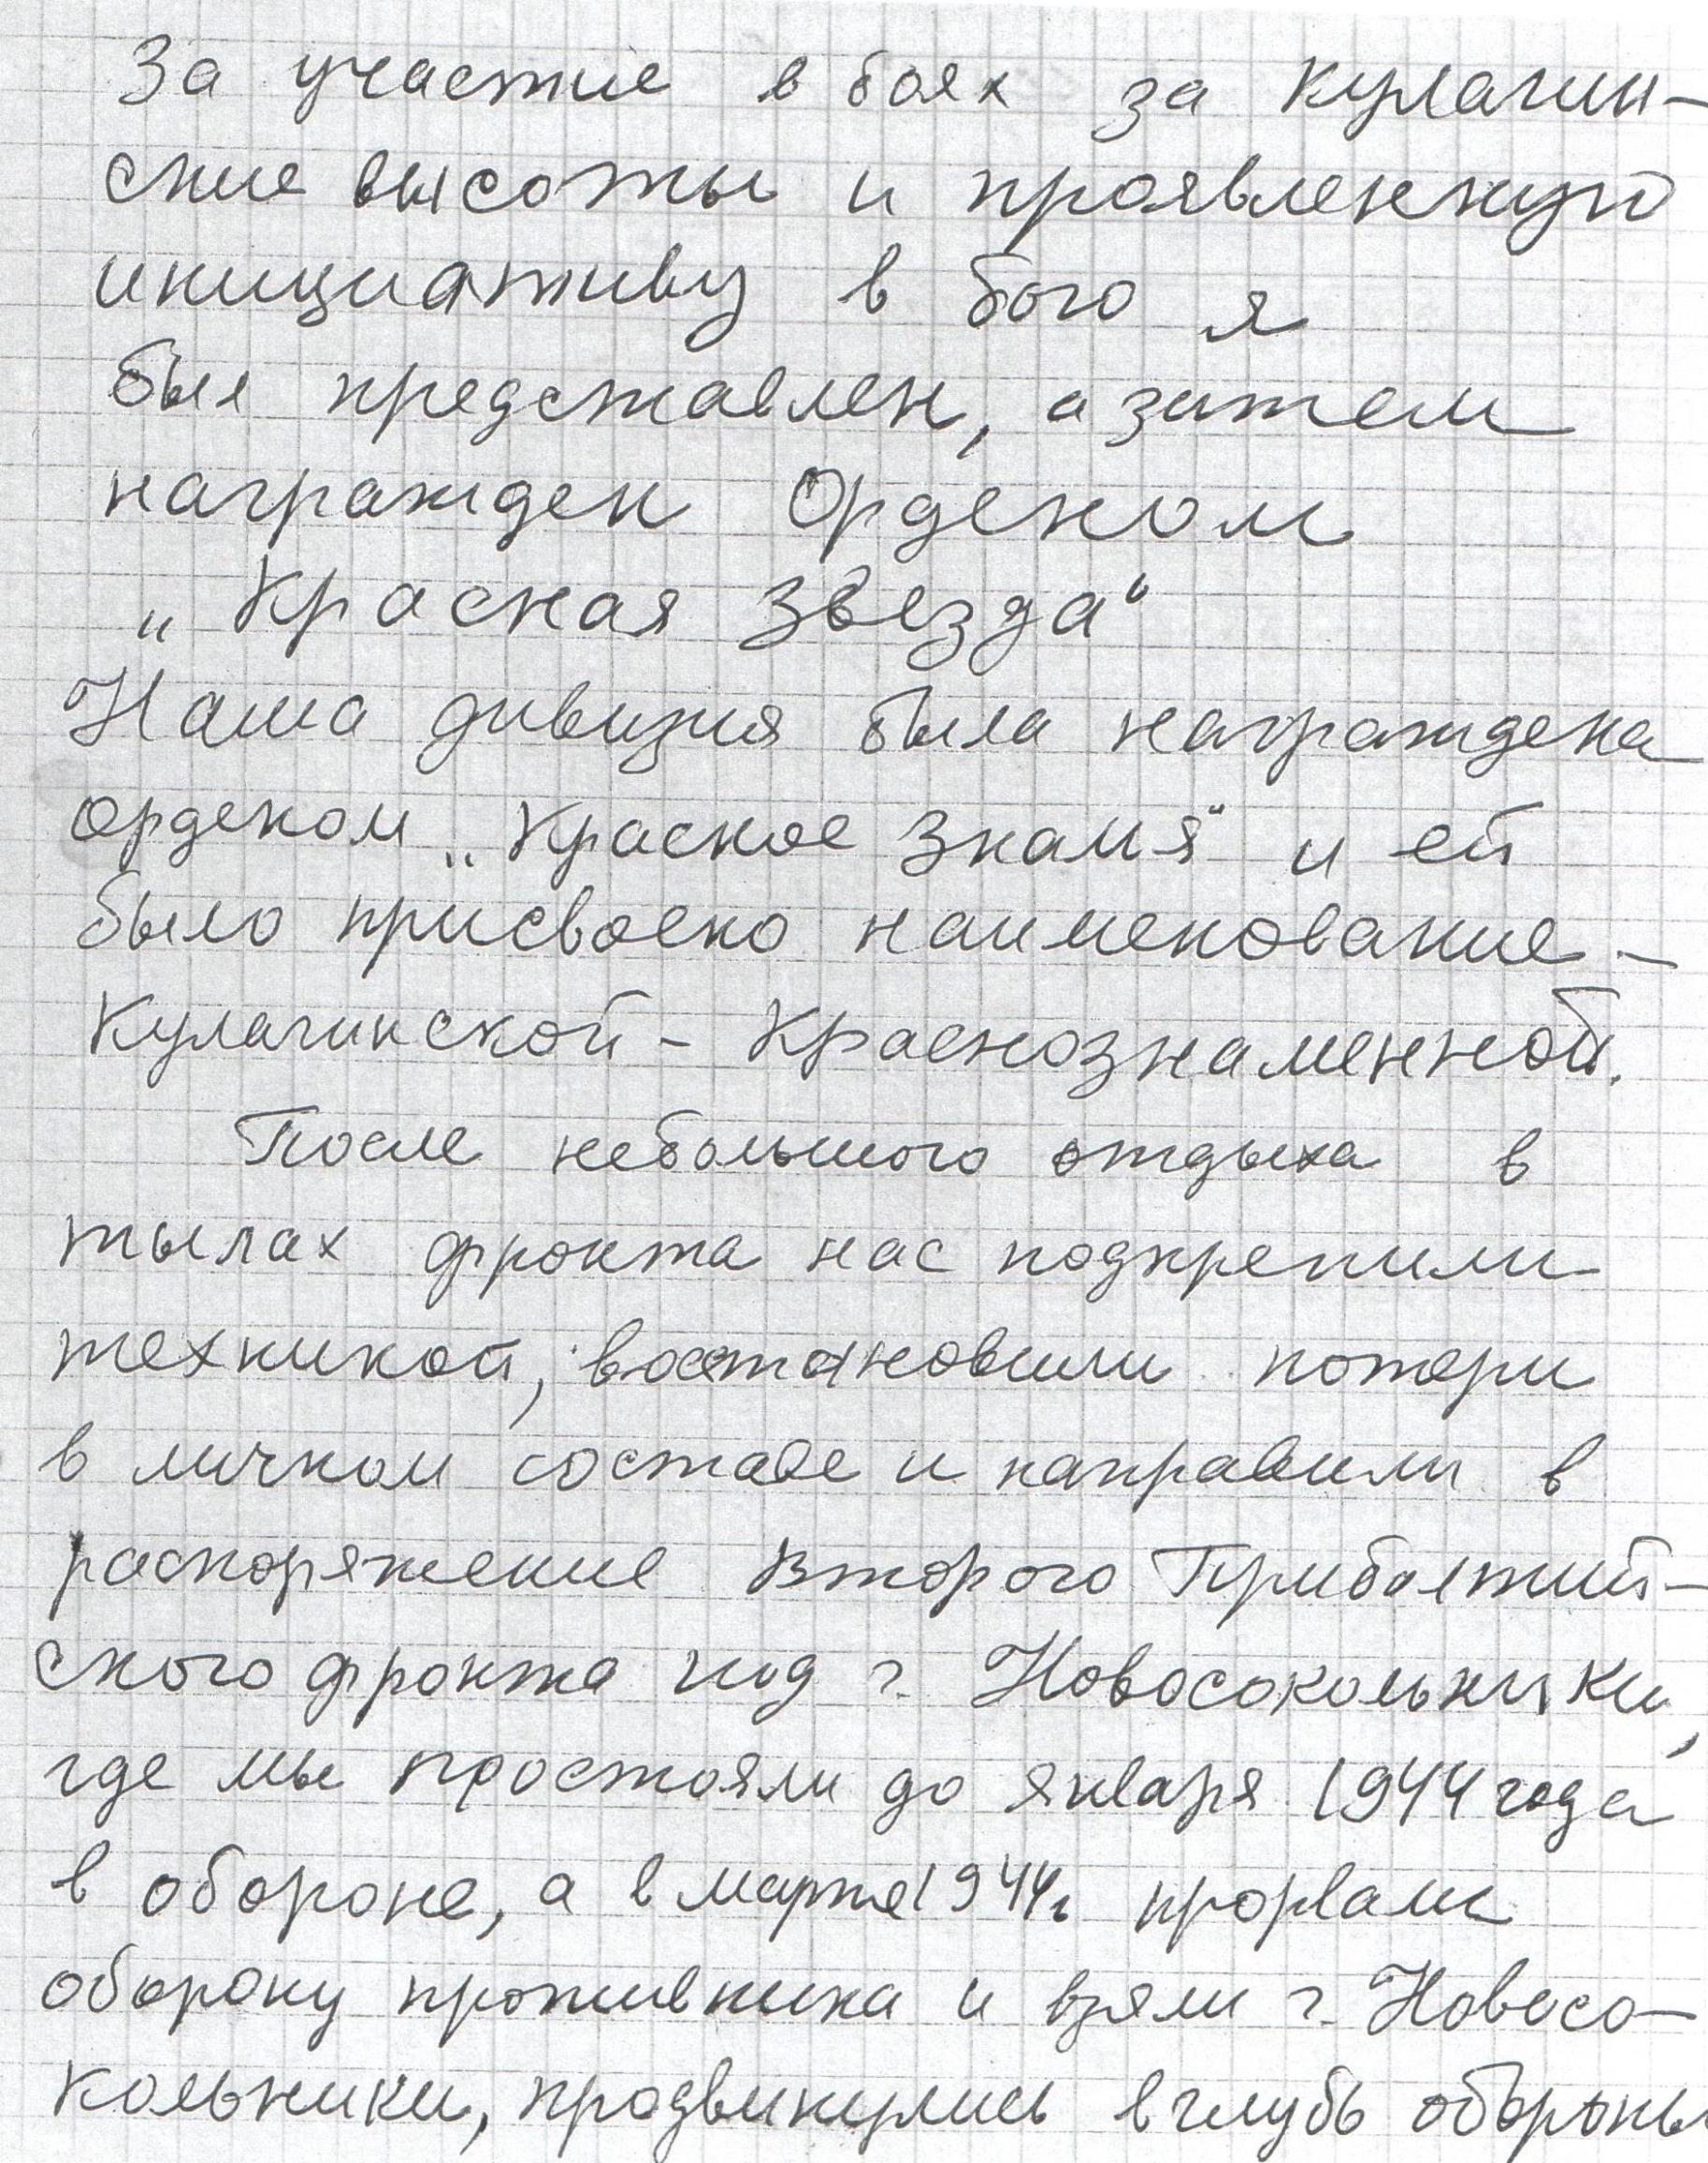 За участие в боях за Кулагин-
ские высоты и проявленную
инициативу в бою я
был представлен, а затем
награжден Орденом
„Красная Звезда“
Наша дивизия была награждена
орденом „Красное Знамя“ и ей
было присвоено наименование –
Кулагинской – Краснознаменной.
После небольшого отдыха в
тылах фронта нас подкрепили
техникой, востановили потери
в личном составе и направили в
распоряжение Второго Прибалтий-
ского фронта под г. Новосокольники,
где мы простояли до января 1944 года
в обороне, а в марте 1944г прорвали
оборону противника и взяли г. Новосо-
кольники, продвинулись в глубь обороны